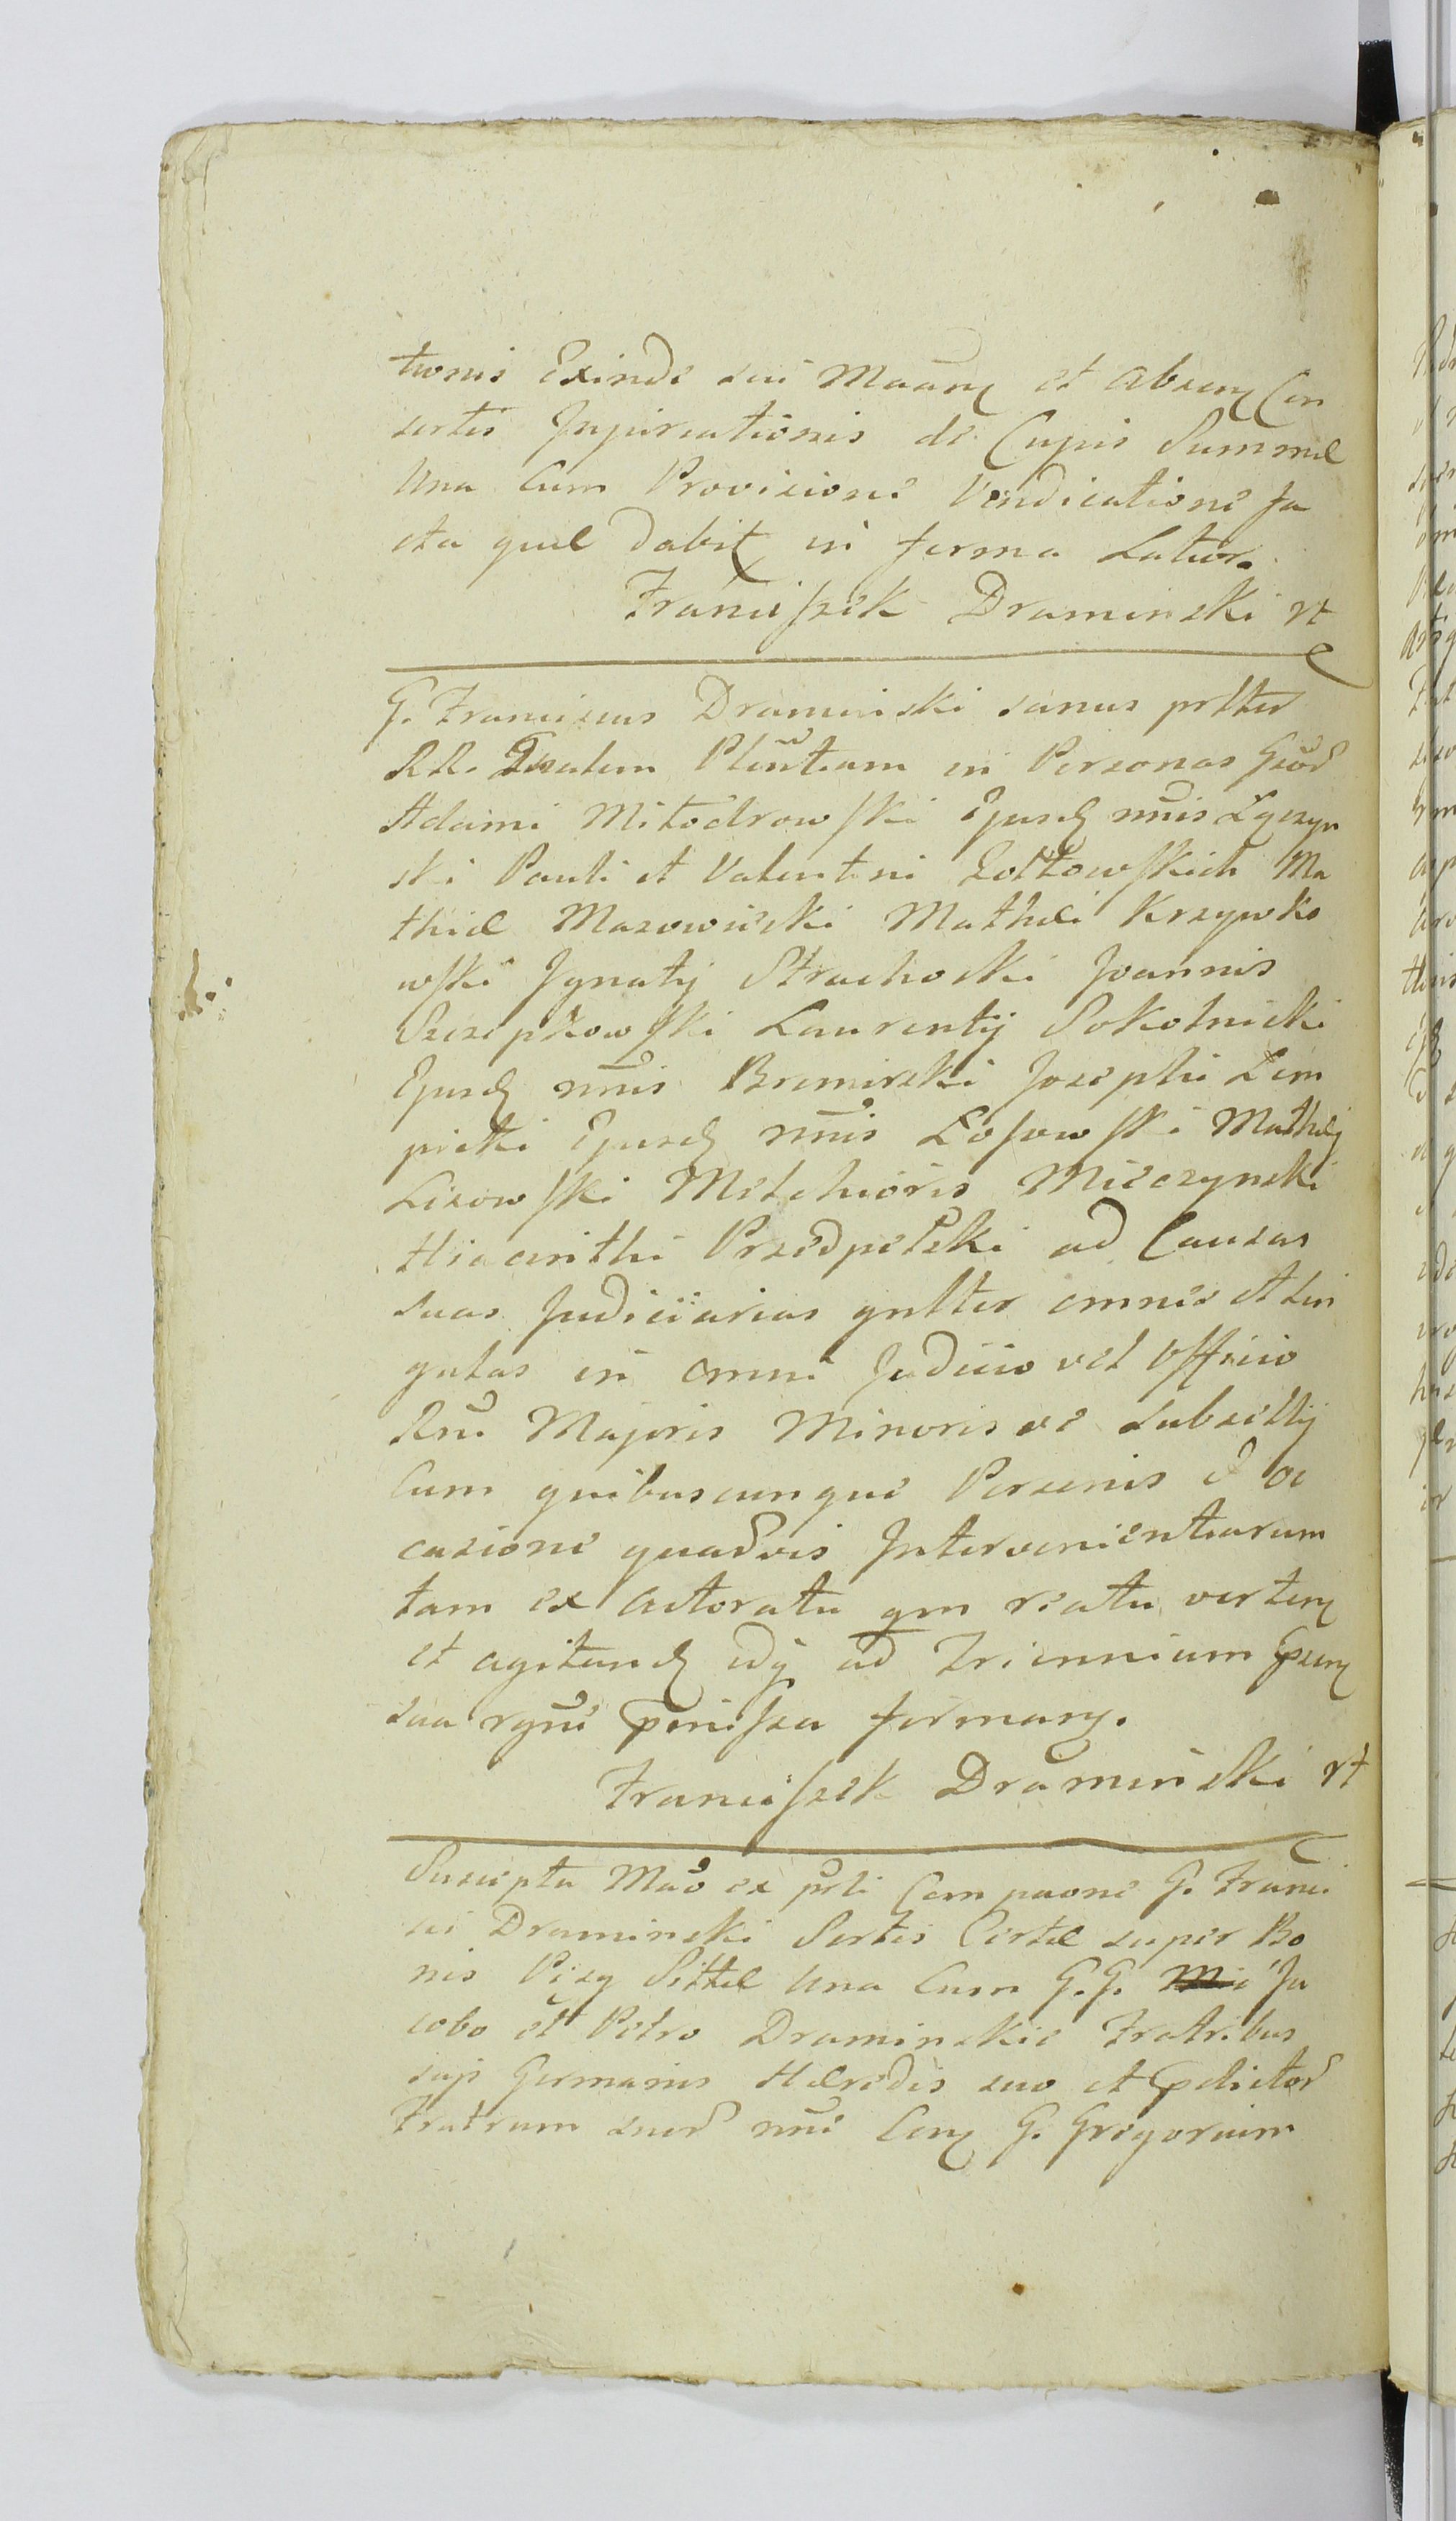 tionis Exinde sui Maãnẽ et absenẽ Con
sortis Inquieutionis de Cujus Summæ
Una Cum Provisione Vendicatione fa
cta quæ dabit in forma Latior.
Franciszek Draminski rt
G. Franciscus Draminski sanus prltter
RR. Tsalem Plentiam in Personas Gsōr
Adami Mitodrowski Ejusd nñis Lęczyn
ski Pauli et Valentini Zołtowskich Ma
thiæ Mazowiecki Mathæi Krzywko
wski Ignatij Strachoski Joannis
Szczepkowski Laurentij Sokolnicki
Ejusd nñis Bromirski Josephi Lem
picki Ejusd nñis Łosowski Mathæj
Lisowski Melchioris Mieczynski
Hiacinthi Przedpelski ad Causas
suas Judiciiarias gnltter omnes et Sin
gulas in omni Judicio vel Officio
Rñi Majoris Minoris ve Subsellij
Cum quibuscunque Personis et oc
casione quadvis Intervenientiarum
tam ex actoratu qm reatu vertenẽ
et agitand idq ad Triennium psenẽ
sua rgñe pmissa firmanẽ.
Franciszek Draminski rt
Suscepta Mãō ex prti Compaone G. Franci
sci Draminski Sortis Certæ super Bo
nis Una Cum G.G. Ja
cobo et Petro Draminskie Fratribus
suis Germanis Hæredis suo et pdictor
Fratrum suor nñe Conẽ G. Gregorium